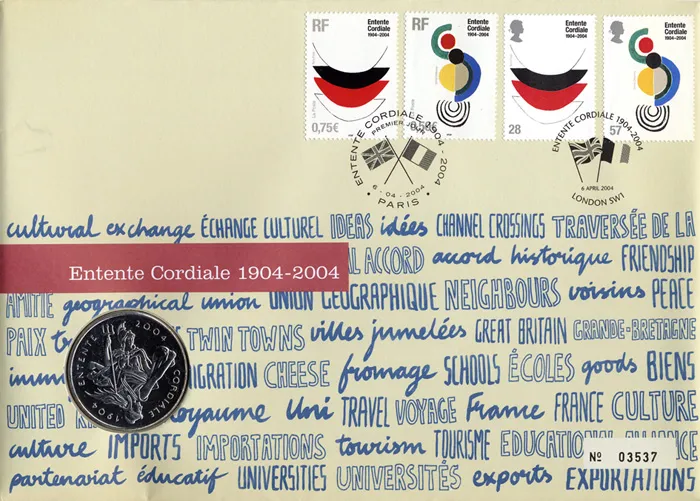 RF Entente Cordiale 1904-2004
La Poste
0,75€
RF Entente Cordiale 1904-2004
0,50€
Entente Cordiale 1904-2004
28
Entente Cordiale 1904-2004
57
ENTENTE CORDIALE 1904 - 2004
PREMIER JOUR
6 - 04 - 2004
PARIS
ENTENTE CORDIALE 1904-2004
6 APRIL 2004
LONDON SW1
cultural exchange ÉCHANGE CULTUREL IDEAS idées CHANNEL CROSSINGS TRAVERSÉE DE LA
Entente Cordiale 1904-2004
ACCORD accord historique FRIENDSHIP
AMITIE geographical union UNION GEOGRAPHIQUE NEIGHBOURS voisins PEACE
PAIX TWIN TOWNS villes jumelées GREAT BRITAIN GRANDE-BRETAGNE
CHEESE fromage SCHOOLS ÉCOLES goods BIENS
ENTENTE III 2004
1904 CORDIALE
UNITED Royaume Uni TRAVEL VOYAGE France FRANCE CULTURE
culture IMPORTS IMPORTATIONS tourism TOURISME EDUCATIONAL
No 03537
partenariat éducatif UNIVERSITIES UNIVERSITÉS exports EXPORTATIONS